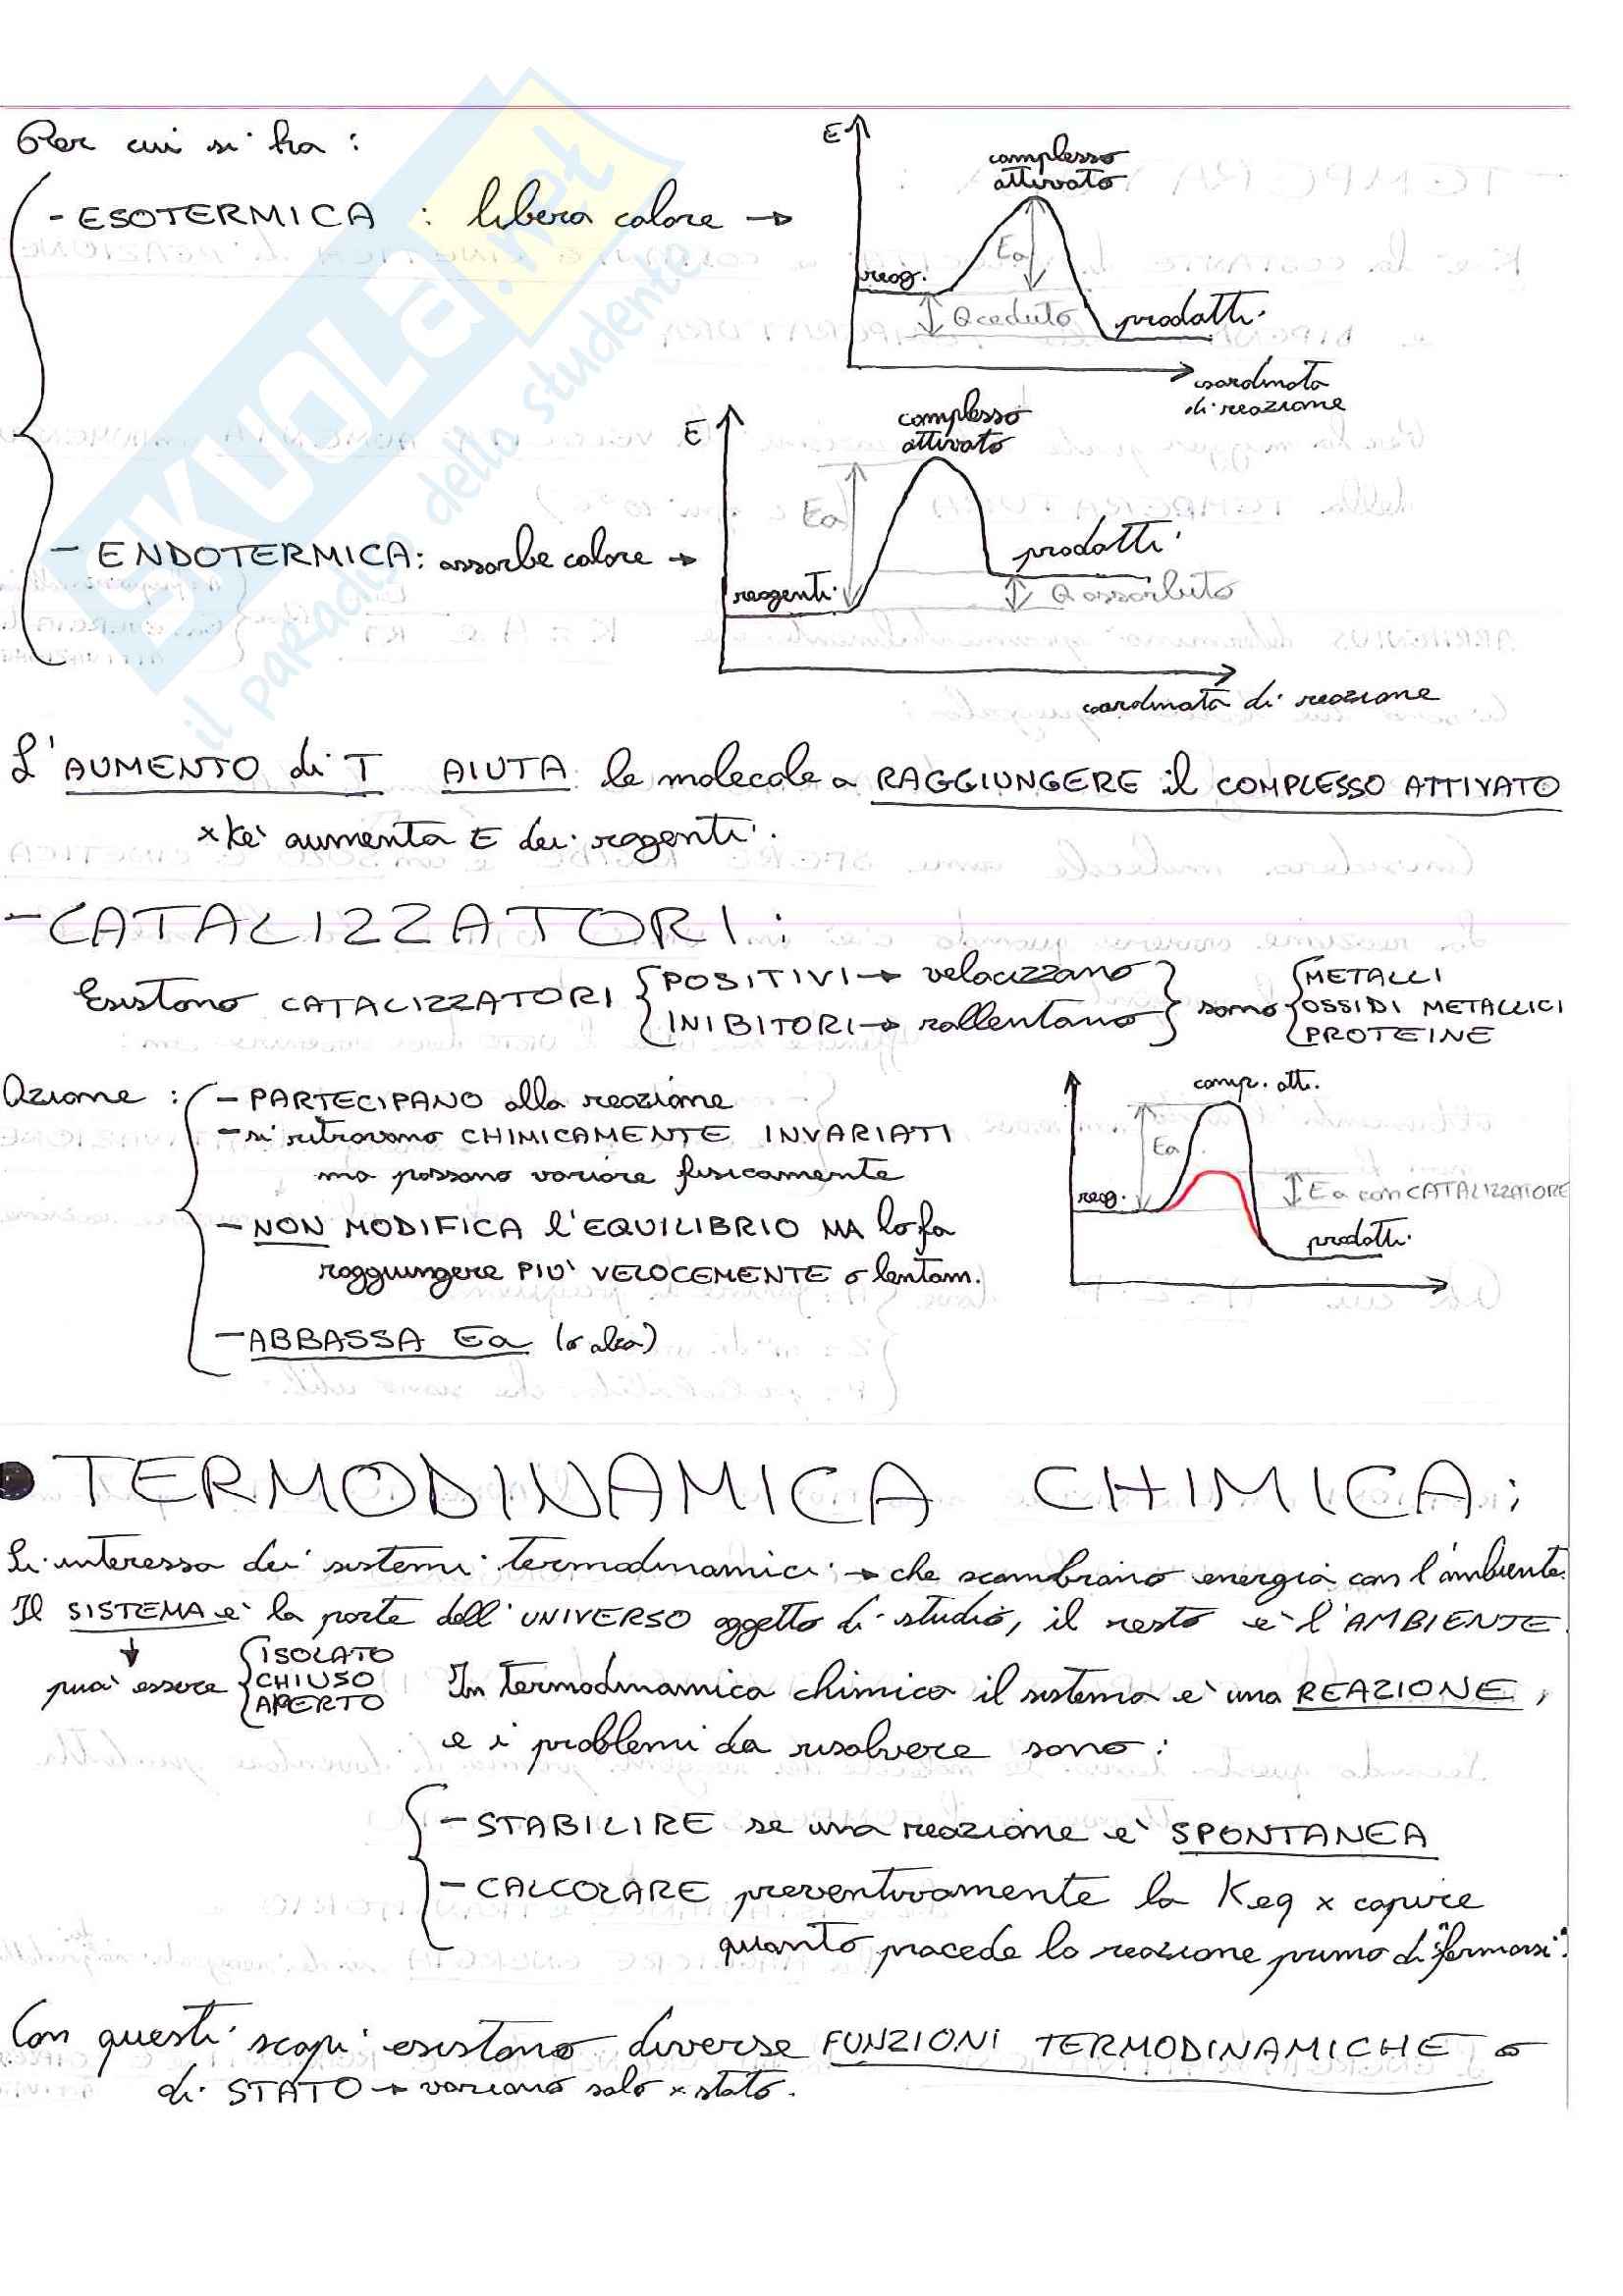 Per cui si ha :
- ESOTERMICA : libera calore →
E
complesso
attivato
Ea
reag.
Qceduto
prodotti
coordinata
di reazione
E
complesso
attivato
Ea
- ENDOTERMICA: assorbe calore →
prodotti
reagenti
Q assorbito
coordinata di reazione
L'AUMENTO di T AIUTA le molecole a RAGGIUNGERE il COMPLESSO ATTIVATO
xkè aumenta E dei ragenti.
- CATALIZZATORI :
Esistono CATALIZZATORI { POSITIVI → velocizzano
INIBITORI → rallentano } sono { METALLI
OSSIDI METALLICI
PROTEINE
Azione : - PARTECIPANO alla reazione
- si ritrovano CHIMICAMENTE INVARIATI
ma possono variare fisicamente
- NON MODIFICA l'EQUILIBRIO MA lo fa
raggiungere PIÙ VELOCEMENTE o lentam.
- ABBASSA Ea (o alza)
comp. att.
Ea
reag.
Ea con CATALIZZATORE
prodotti
• TERMODINAMICA CHIMICA :
Si interessa dei sistemi termodinamici → che scambiano energia con l'ambiente.
Il SISTEMA è la parte dell'UNIVERSO oggetto di studio, il resto è l'AMBIENTE.
↓
può essere { ISOLATO
CHIUSO
APERTO
In termodinamica chimica il sistema è una REAZIONE,
e i problemi da risolvere sono :
- STABILIRE se una reazione è SPONTANEA
- CALCOLARE preventivamente la Keq x capire
quanto procede la reazione prima di "fermarsi".
Con questi scopi esistono diverse FUNZIONI TERMODINAMICHE o
di STATO → variano solo x stato.
SKUOLA.net
il paradiso dello studente